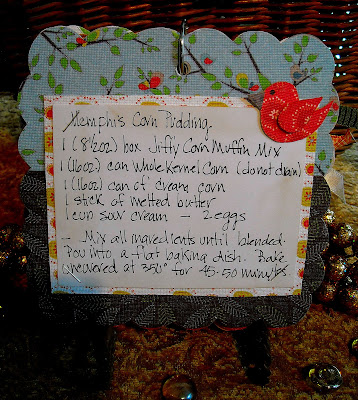 Memphis Corn Pudding
1 (8 1/2oz) box Jiffy Corn Muffin Mix
1 (16oz) can Whole Kernel Corn (do not drain)
1 (16oz) can of cream corn
1 stick of melted butter
1 cup sour cream - 2 eggs
- Mix all ingredients until blended.
Pou into a flat baking dish. Bake
uncovered at 350° for 45-50 minutes.